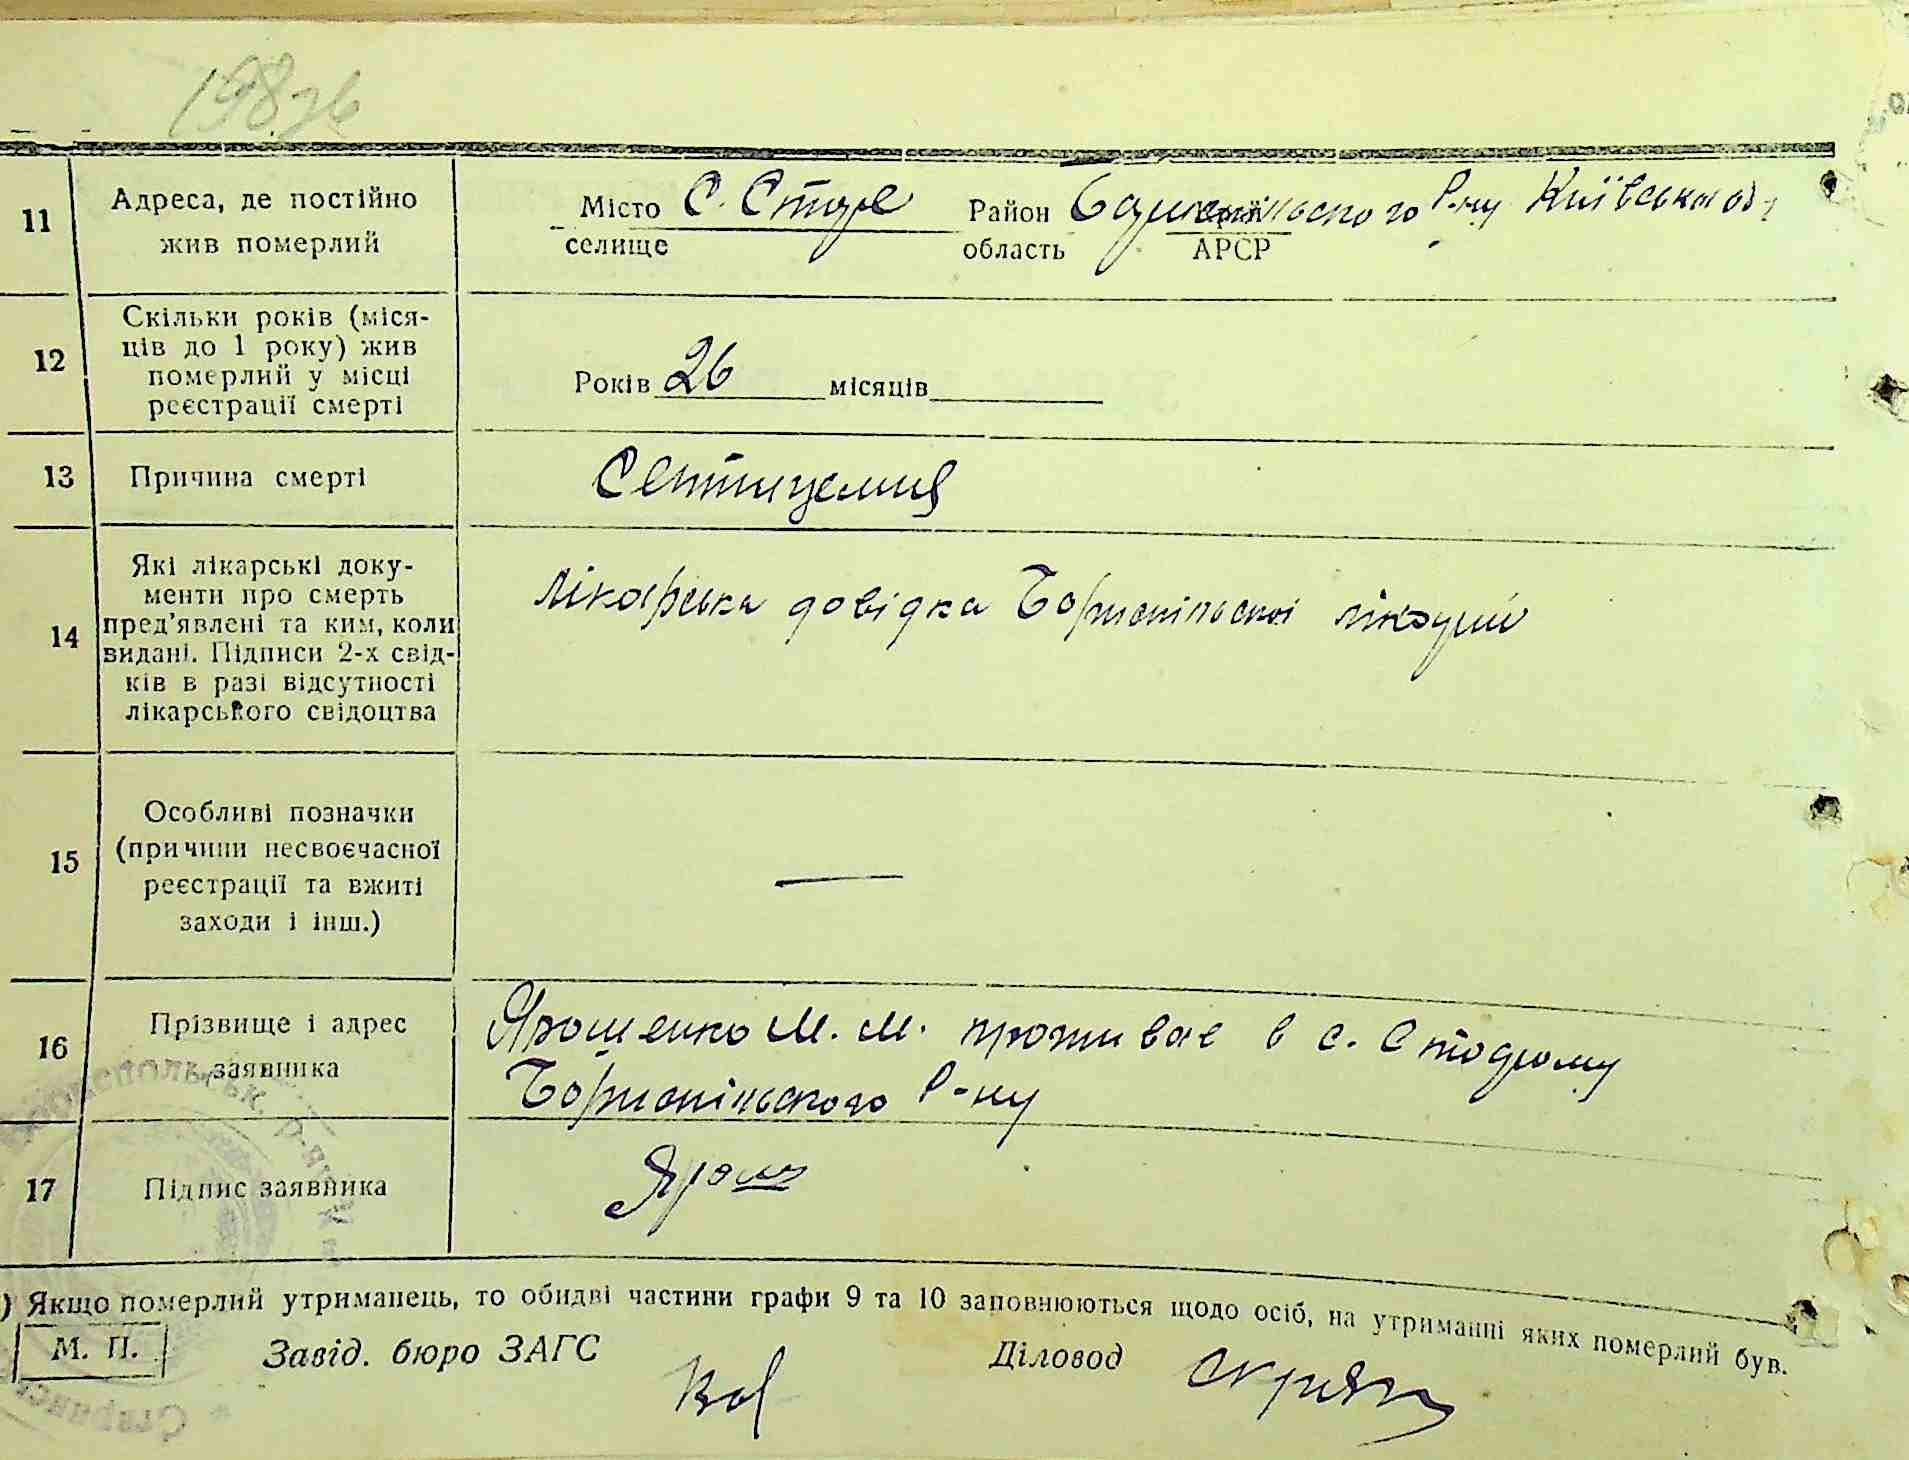 198зв
11
Адреса, де постійно
жив померлий
Місто С. Старе Район Бориспільського р-ну Київської обл
селище область АРСР
12
Скільки років (міся-
ців до 1 року) жив
померлий у місці
реєстрації смерті
Років 26 місяців
13
Причина смерті
Септицемия
14
Які лікарські доку-
менти про смерть
пред'явлені та ким, коли
видані. Підписи 2-х свід-
ків в разі відсутності
лікарського свідоцтва
Лікарська довідка Бориспільскої лікарні
15
Особливі позначки
(причини несвоєчасної
реєстрації та вжиті
заходи і інш.)
—
16
Прізвище і адрес
заявника
Ярошенко М. М. проживає в с. Старому
Бориспільского р-ну
17
Підпис заявника
Ярош
) Якщо померлий утриманець, то обидві частини графи 9 та 10 заповнюються щодо осіб, на утриманні яких померлий був.
М. П.
Завід. бюро ЗАГС
Діловод